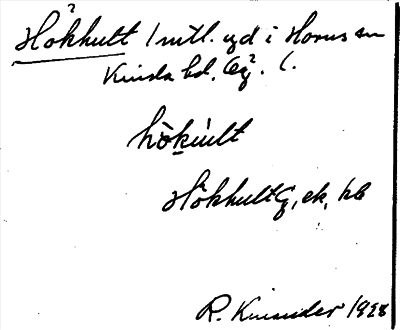 Hökhult 1 mtl. gd i Horns sn
Kinda hd, Ög. l.
hö̀kúult
Hökhult G, ek, kb
R. Kinander 1928